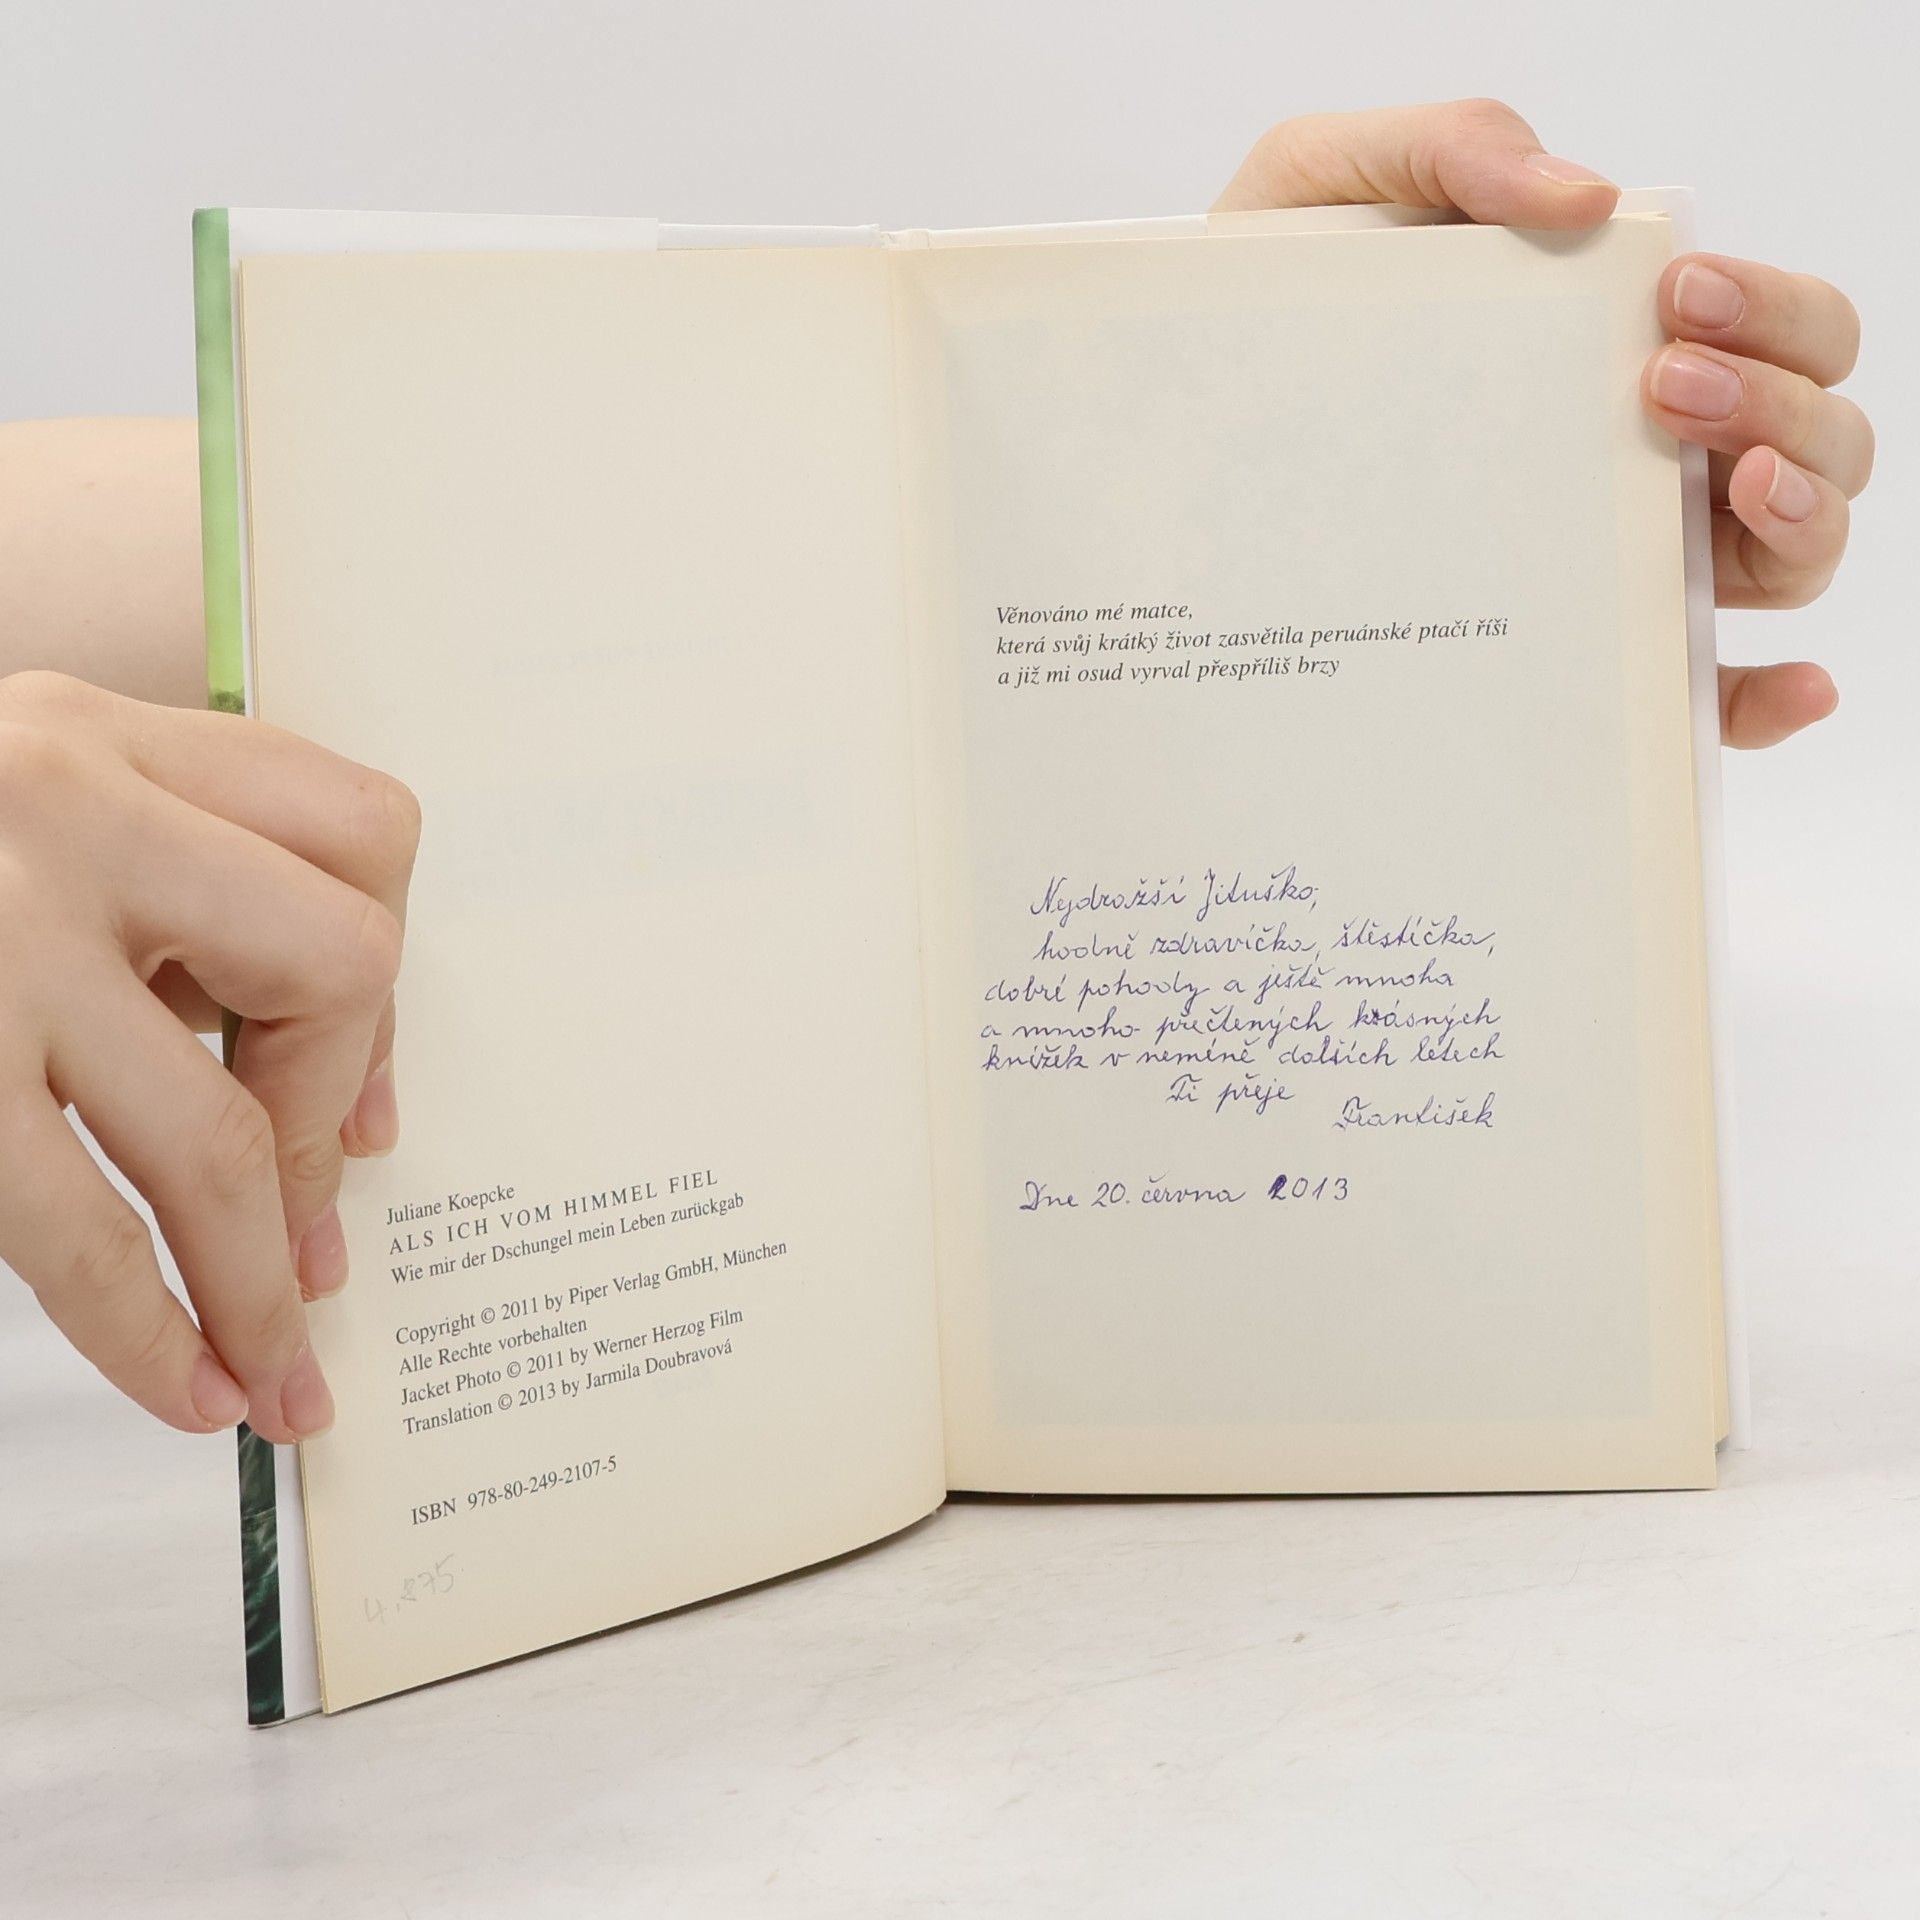 Juliane Koepcke
ALS ICH VOM HIMMEL FIEL
Wie mir der Dschungel mein Leben zurückgab
Copyright © 2011 by Piper Verlag GmbH, München
Alle Rechte vorbehalten
Jacket Photo © 2011 by Werner Herzog Film
Translation © 2013 by Jarmila Doubravová
ISBN 978-80-249-2107-5
4.875
Věnováno mé matce,
která svůj krátký život zasvětila peruánské ptačí říši
a již mi osud vyrval přespříliš brzy
Nejdražší Jituško,
hodně zdravíčka, štěstíčka,
dobré pohody a ještě mnoha
a mnoho přečtených krásných
knížek v neméně dalších letech
Ti přeje
František
Dne 20. června 2013